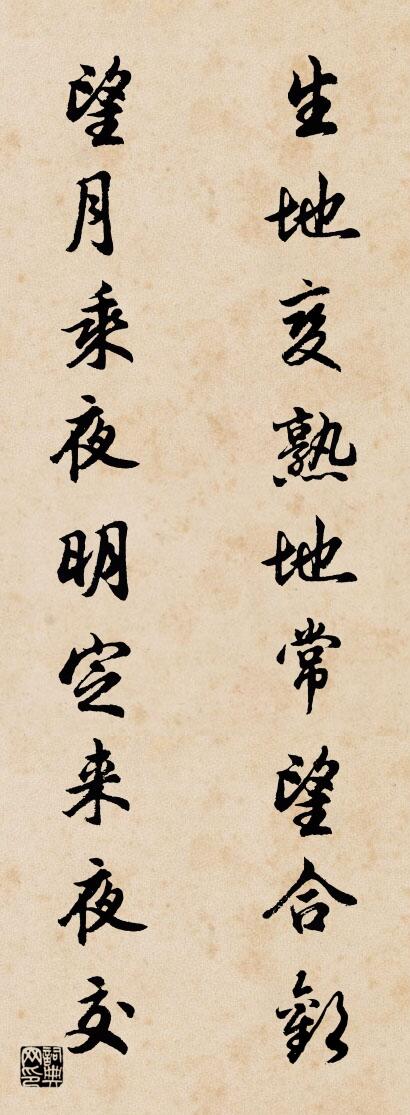 生地变熟地常望合歡
望月乘夜明定来夜交
詞典
网印